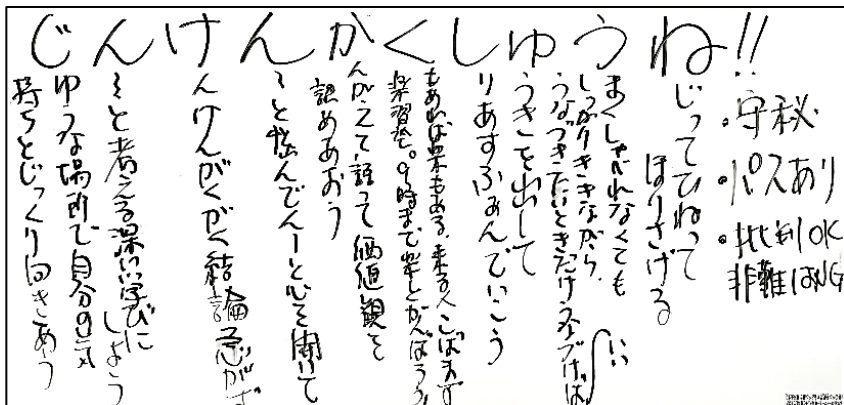 じんけんがくしゅうね!!
・守秘
・パスあり
・批判OK
非難はNG
じってひねって
ほりさげる
まくしゃべれなくても
しっかりききながら、
うなづきたいときだけうなづけばいい
うきを出して
りあすふぁんでいこう
もあれば楽もある、来る人こばまず
楽習会。9時まで
んがえて、語って価値観を
認めあおう
と悩んでんーと心を開いて
んけんがくがく結論急がず
と考える深い学びにしよう
ゆうな場所で自分の気
持ちとじっくり向きあう